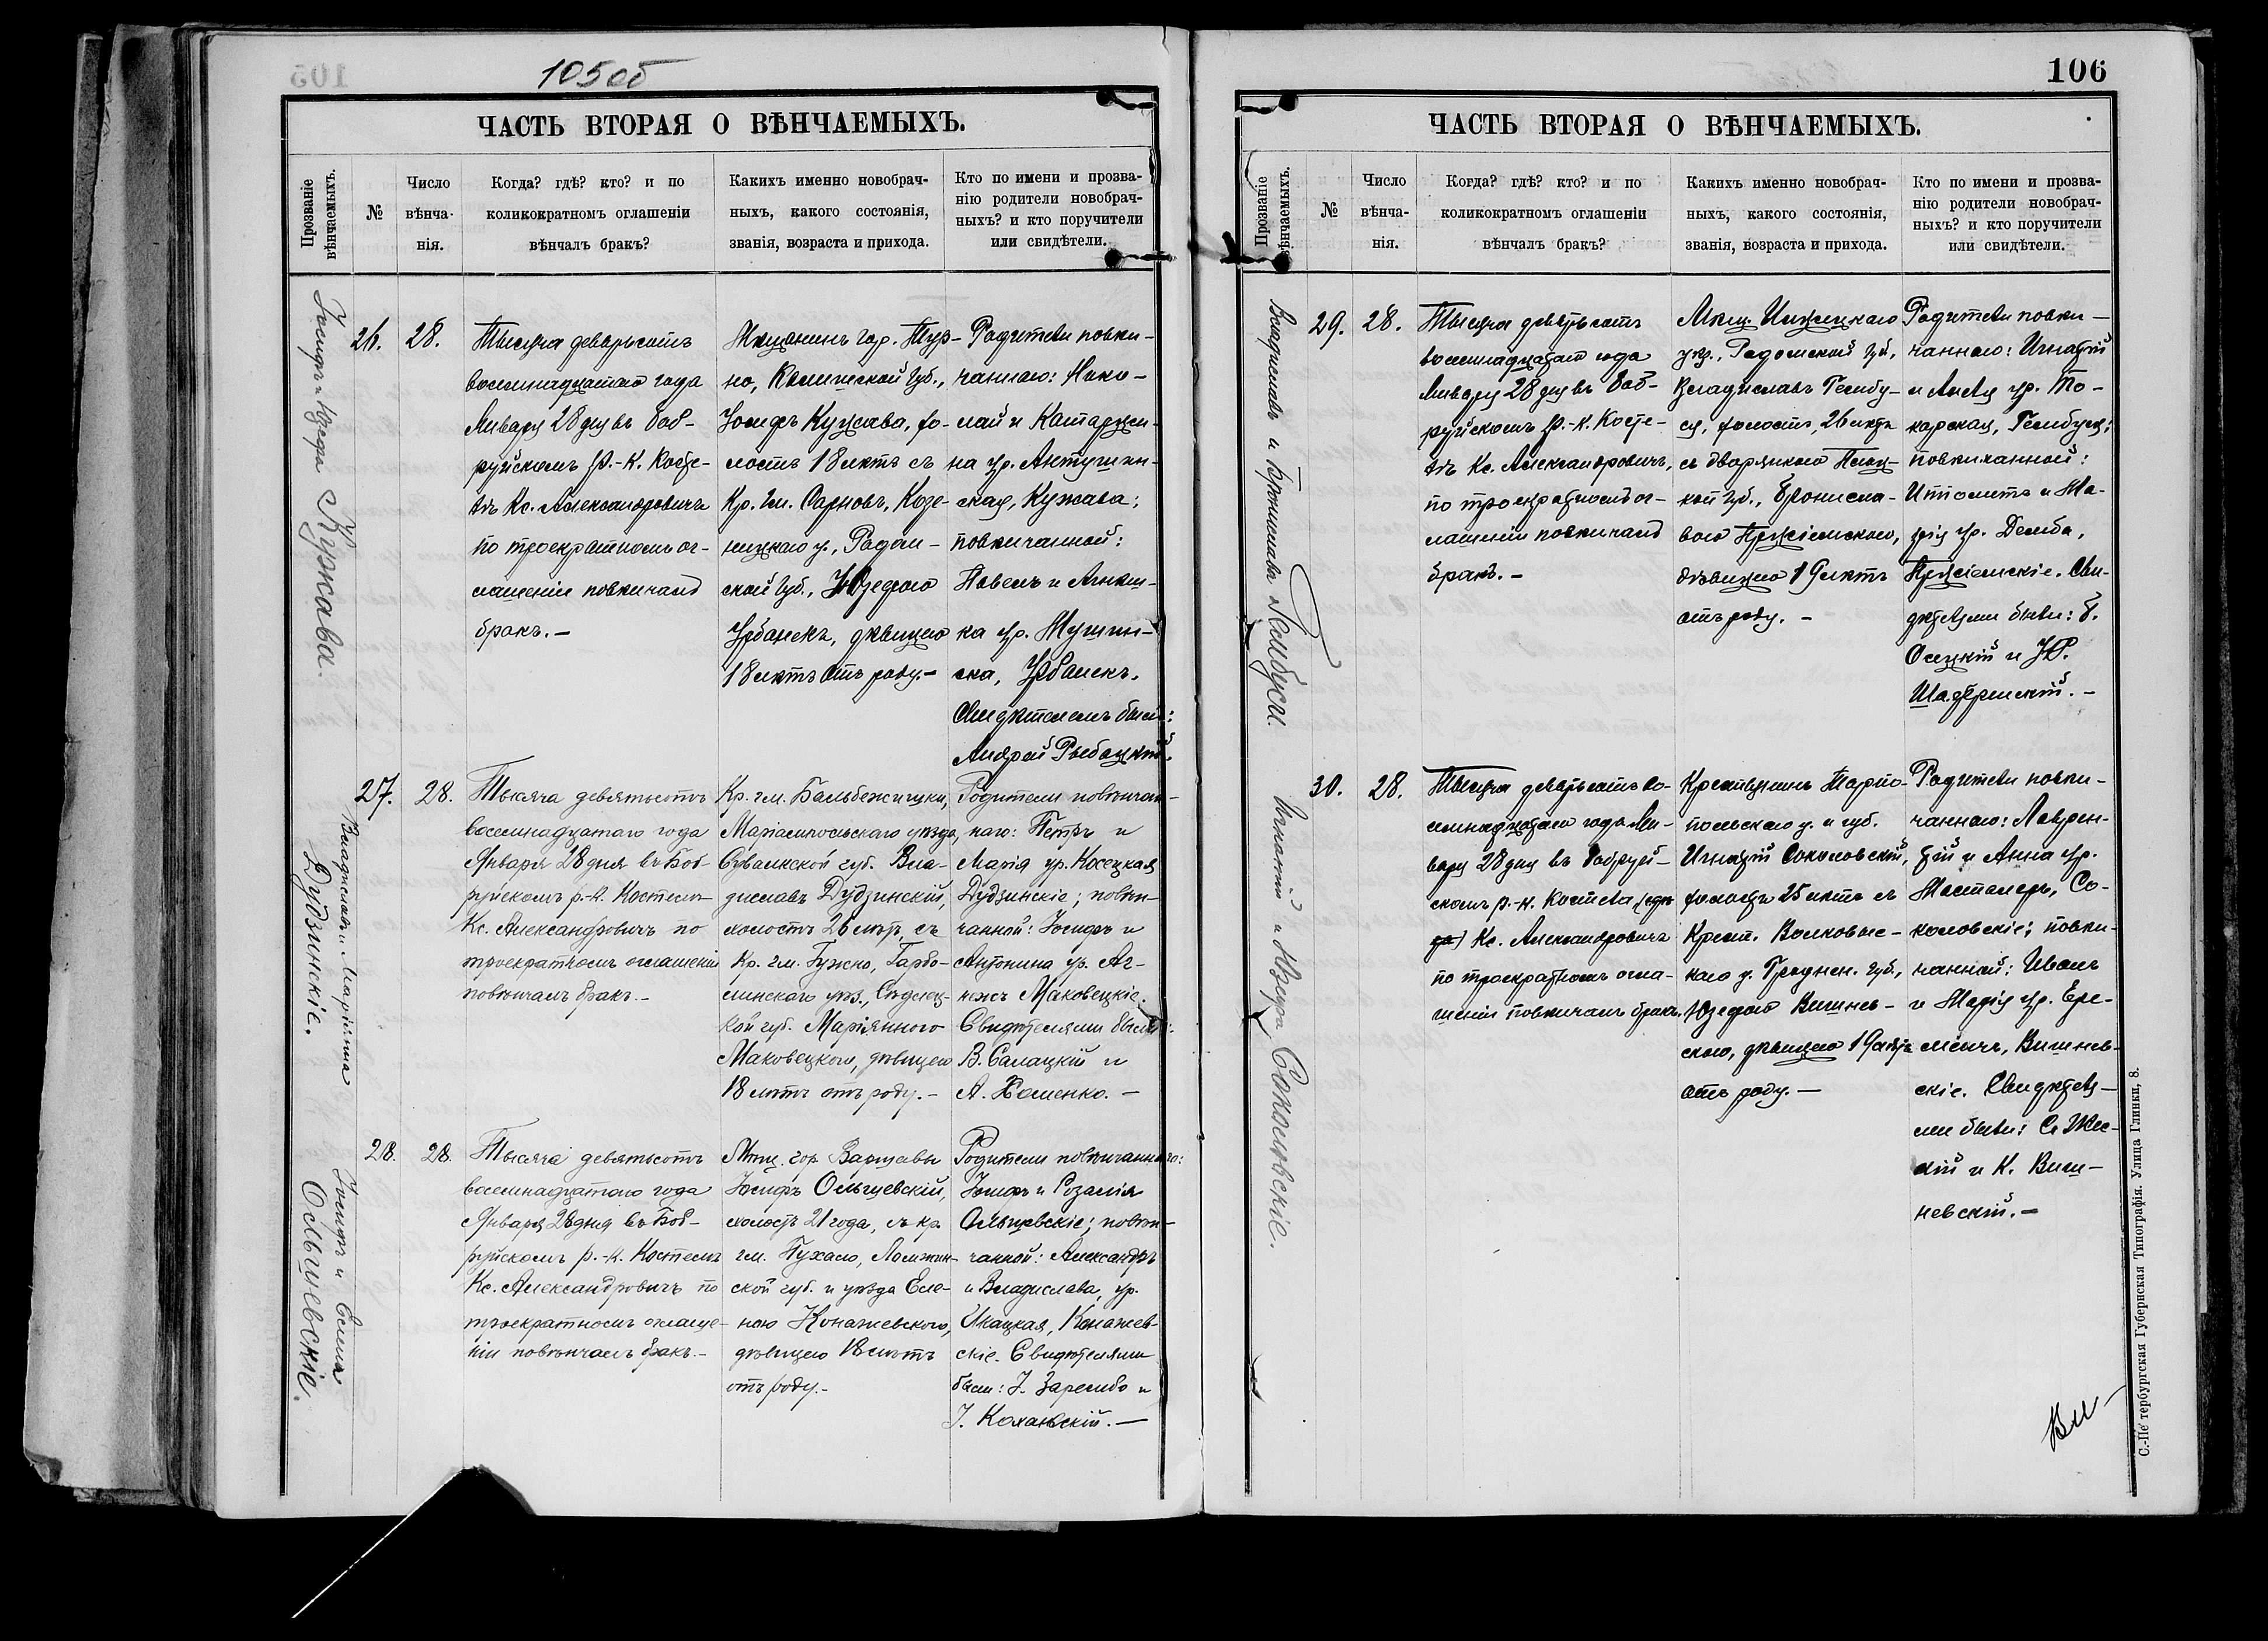 105об
ЧАСТЬ ВТОРАЯ О ВѢНЧАЕМЫХЪ.
Прозваніе
вѣнчаемыхъ.
№
Число
вѣнча-
нія.
Когда? гдѣ? кто? и по
коликократномъ оглашеніи
вѣнчалъ бракъ?
Какихъ именно новобрач-
ныхъ, какого состоянія,
званія, возраста и прихода.
Кто по имени и прозва-
нію родители новобрач-
ныхъ? и кто поручители
или свидѣтели.
Іосифъ и Юзефа Кужава.
26.
28.
Тысяча девятьсотъ
восемнадцатаго года
Января 28 дня въ Боб-
руйскомъ р.-к. Косте-
лѣ Кс. Александровичъ
по троекратномъ ог-
лашеніи повѣнчалъ
бракъ.—
Мѣщанинъ гор. Тур-
но, Калишской губ.,
Іосифъ Кужава, хо-
лостъ 18 лѣтъ съ
Кр. гм. Сарновъ, Козе-
ницкаго у., Радом-
ской губ., Юзефою
Урбанекъ, дѣвицею
18 лѣтъ отъ роду.—
Родители повѣн-
чаннаго: Нико-
лай и Катаржи-
на ур. Антушин-
ская, Кужава;
повѣнчанной:
Павелъ и Агнѣш-
ка ур. Мушин-
ска, Урбанекъ.
Свидѣтелемъ былъ:
Андрей Рыбацкій.
Владиславъ и Маріанна
Дудзинскіе.
27.
28.
Тысяча девятьсотъ
восемнадцатаго года
Января 28 дня въ Боб-
руйскомъ р.-к. Костелѣ
Кс. Александровичъ по
троекратномъ оглашеніи
повѣнчалъ бракъ.—
Кр. гм. Бальбежишки,
Маріампольскаго уѣзда,
Сувалкской губ. Вла-
диславъ Дудзинскій,
холостъ 26 лѣтъ, съ
Кр. гм. Гужно, Гарво-
линскаго уѣз., Сѣдлец-
кой губ. Маріянною
Маковецкою, дѣвицею
18 лѣтъ отъ роду.—
Родители повѣнчан-
наго: Петръ и
Марія ур. Косецкая
Дудзинскіе; повѣн-
чанной: Іосифъ и
Антонина ур. Аг-
нежъ Маковецкіе.
Свидѣтелями были:
В. Салацкій и
А. Хоменко.—
Іосифъ и Елена
Ольшевскіе.
28.
28.
Тысяча девятьсотъ
восемнадцатаго года
Января 28 дня въ Боб-
руйскомъ р.-к. Костелѣ
Кс. Александровичъ по
троекратномъ оглаше-
ніи повѣнчалъ бракъ.—
Мѣщ. гор. Варшавы
Іосифъ Ольшевскій,
холостъ 21 года, съ кр.
гм. Пухало, Ломжин-
ской губ. и уѣзда Еле-
ною Конажевскою,
дѣвицею 18 лѣтъ
отъ роду.—
Родители повѣнчаннаго:
Іосифъ и Розалія
Ольшевскіе; повѣн-
чанной: Александръ
и Владислава, ур.
Конажев-
скіе. Свидѣтелями
были: І. Зарембо и
І. Коханьскій.—
106
ЧАСТЬ ВТОРАЯ О ВѢНЧАЕМЫХЪ.
Прозваніе
вѣнчаемыхъ.
№
Число
вѣнча-
нія.
Когда? гдѣ? кто? и по
коликократномъ оглашеніи
вѣнчалъ бракъ?
Какихъ именно новобрач-
ныхъ, какого состоянія,
званія, возраста и прихода.
Кто по имени и прозва-
нію родители новобрач-
ныхъ? и кто поручители
или свидѣтели.
Владиславъ и Бронислава Гембуси.
29.
28.
Тысяча девятьсотъ
восемнадцатаго года
Января 28 дня въ Боб-
руйскомъ р.-к. Косте-
лѣ Кс. Александровичъ,
по троекратномъ ог-
лашеніи повѣнчалъ
бракъ.—
уѣз., Радомской губ.,
Владиславъ Гембу-
ся, холостъ, 26 лѣтъ
съ дворянкою Плоц-
кой губ., Бронисла-
вою Пржіемскою,
дѣвицею 19 лѣтъ
отъ роду.—
Родители повѣн-
чаннаго: Игнатій
и Анна ур. То-
карская, Гембуси;
повѣнчанной:
Ипполитъ и Ма-
рія ур. Демба,
Пржіемскіе. Сви-
дѣтелями были: Б.
Осицкій и Ю.
Шадерискій.—
Игнатій и Юзефа Соколовскіе.
30.
28.
Тысяча девятьсотъ во-
семнадцатаго года Ян-
варя 28 дня въ Бобруй-
скомъ р.-к. Костела
Кс. Александровичъ
по троекратномъ огла-
шеніи повѣнчалъ бракъ.
Крестьянинъ Марію-
польскаго у. и губ.
Игнатій Соколовскій,
холостъ 25 лѣтъ съ
Крест. Волковыс-
каго у. Гроднен. губ.,
Юзефою Вишнев-
скою, дѣвицею 19 лѣтъ
отъ роду.—
Родители повѣн-
чаннаго: Лаврен-
тій и Анна ур.
Месталеръ, Со-
коловскіе; повѣн-
чанной: Иванъ
и Марія ур. Ере-
меичъ, Вишнев-
скіе. Свидѣтеля-
ми были:
и К. Виш-
невскій.—
С.-Петербургская Губернская Типографія. Улица Глинки, 8.